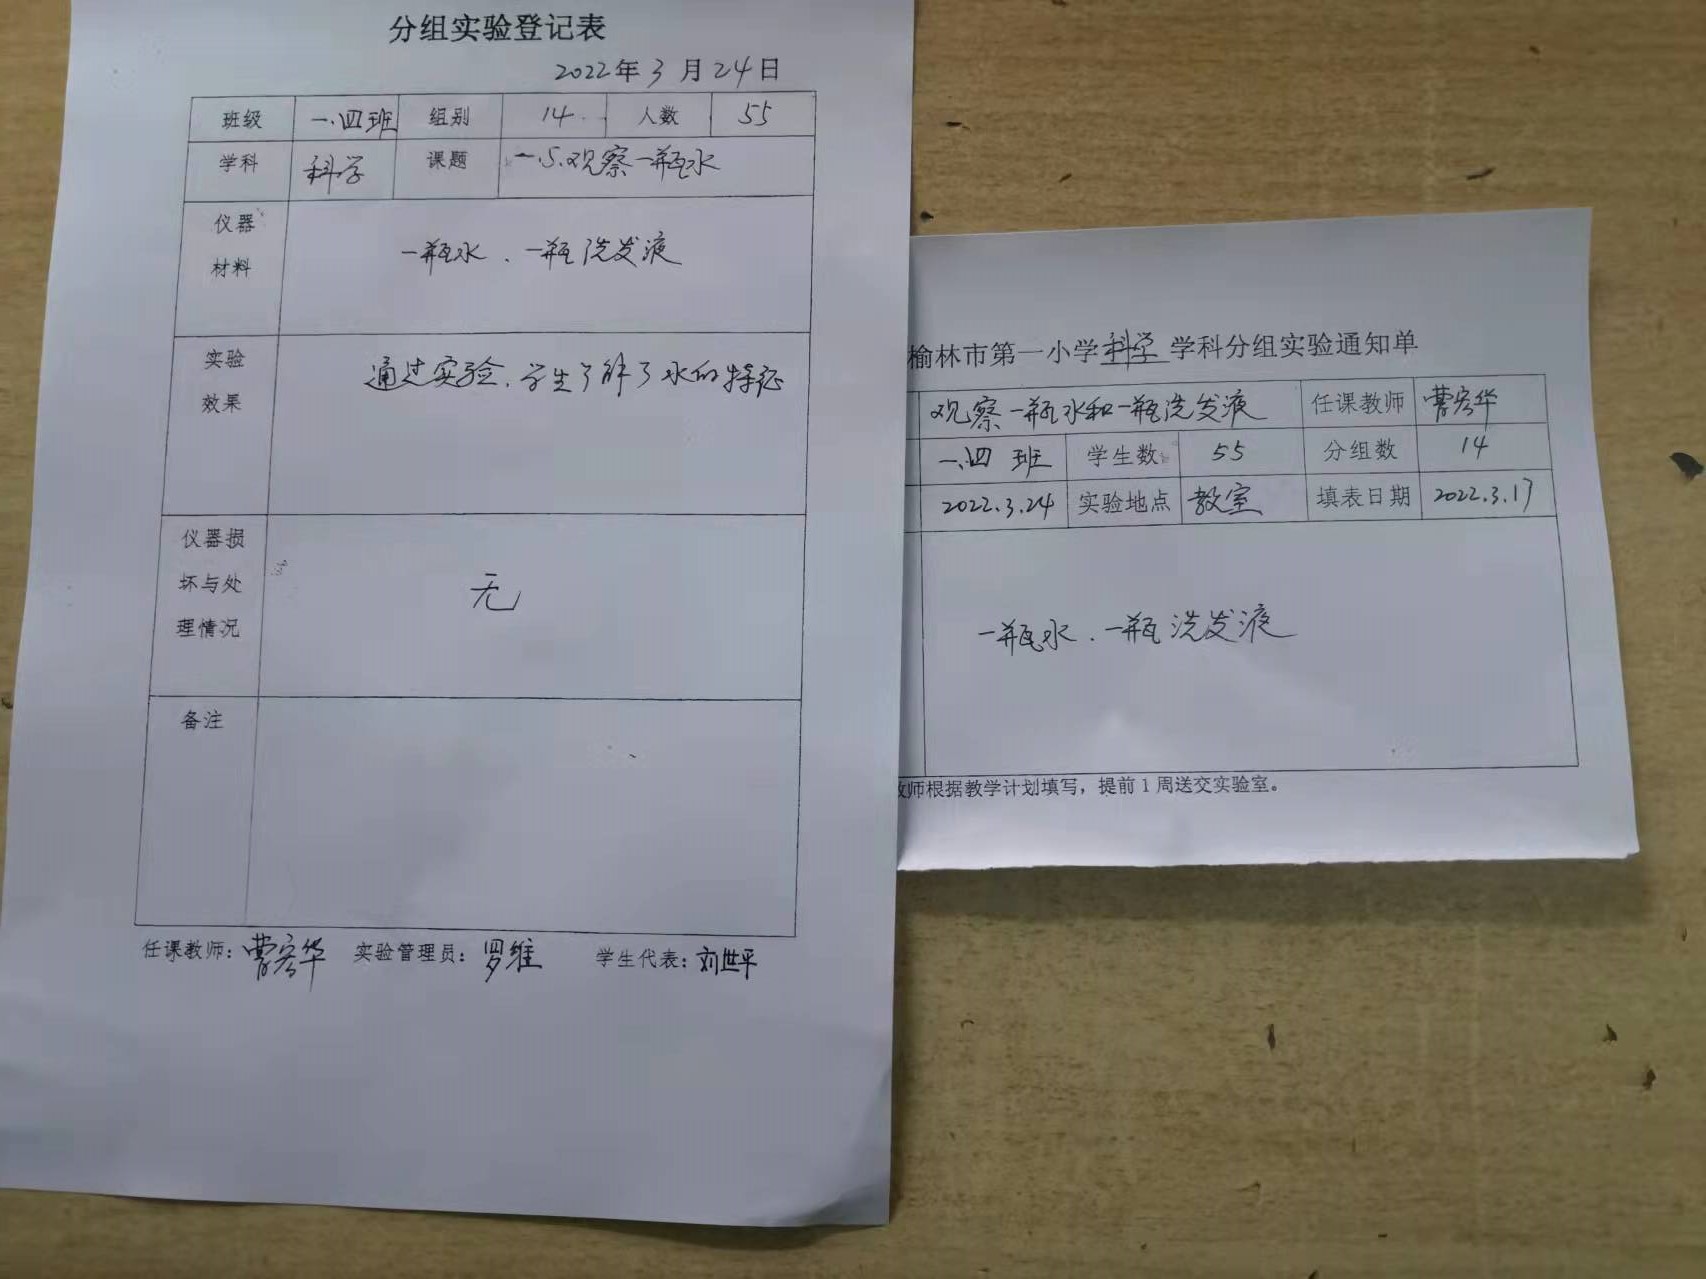 分组实验登记表
2022年3月24日
班级 一.四班 组别 14 人数 55
学科 科学 课题 一.5.观察一瓶水
仪器
材料
一瓶水、一瓶洗发液
实验
效果
通过实验,学生了解了水的特征
仪器损
坏与处
理情况
无
备注
任课教师:曹宏华 实验管理员:罗维 学生代表:刘世平
榆林市第一小学科学学科分组实验通知单
观察一瓶水和一瓶洗发液 任课教师 曹宏华
一.四班 学生数 55 分组数 14
2022.3.24 实验地点 教室 填表日期 2022.3.17
一瓶水、一瓶洗发液
教师根据教学计划填写,提前1周送交实验室。